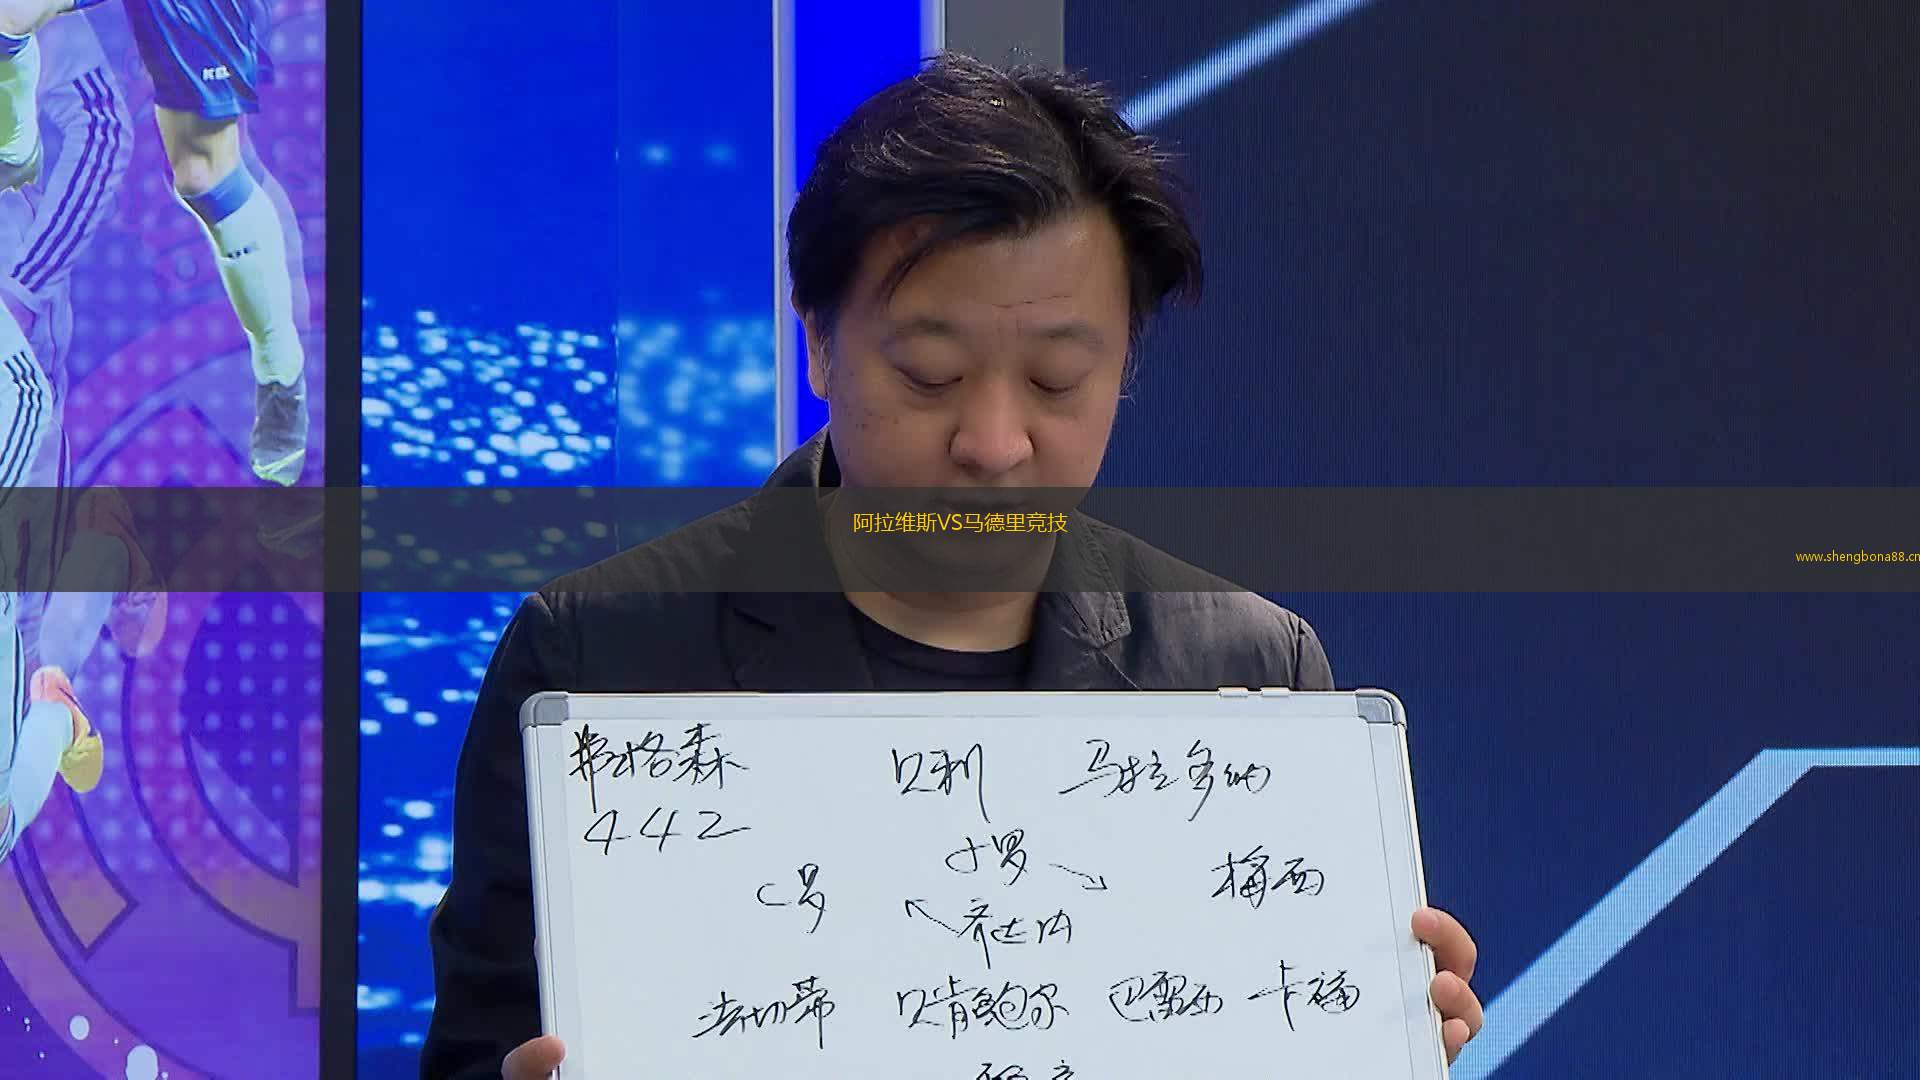 阿拉维斯VS马德里竞技
www.shengbona88.cn
弗格森 贝利 马拉多纳
442
小罗
C罗 梅西
齐达内
法切蒂 贝肯鲍尔 巴雷西 卡福